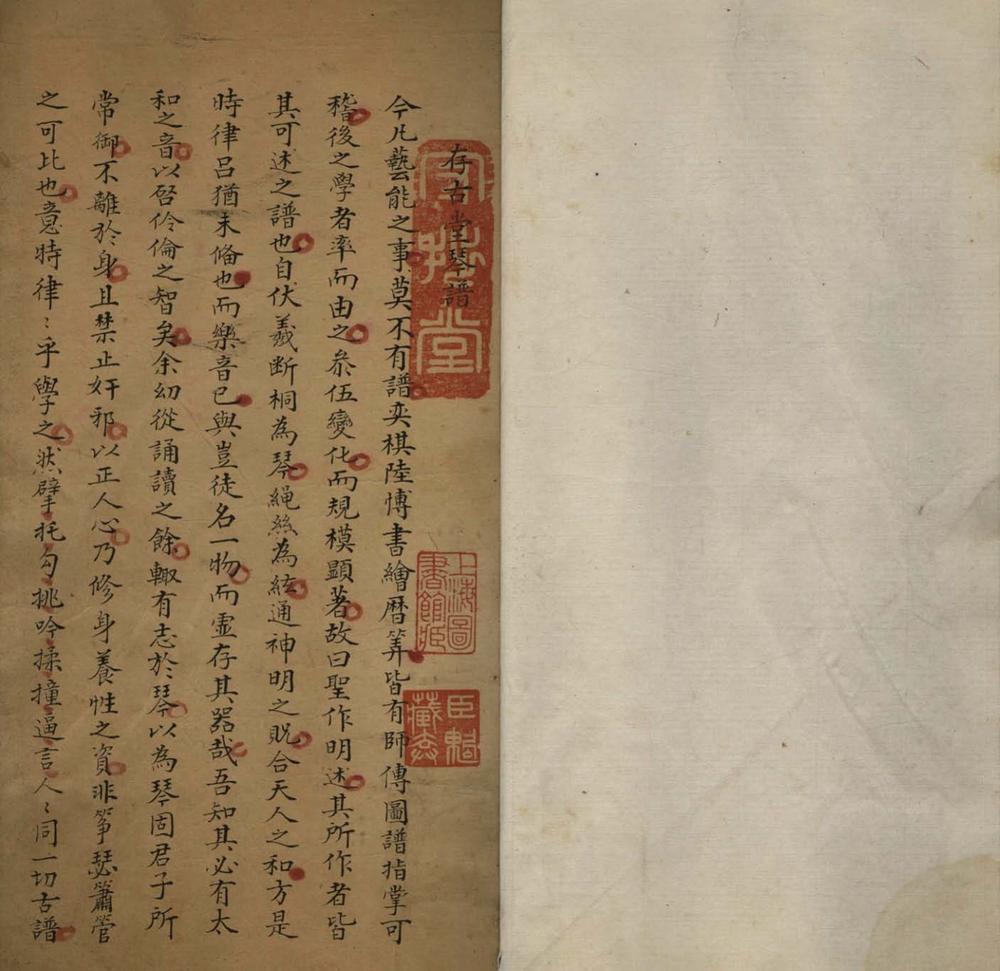 存古堂琴譜
今凡藝能之事莫不有譜奕棋陸愽書繪曆筭皆有師傳圖譜指掌可
稽後之學者率而由之叅伍變化而規模顯著故曰聖作明述其所作者皆
其可述之譜也自伏羲断桐為琴繩絲為絃通神明之貺合天人之和方是
時律呂猶未俻也而樂音已與豈徒名一物而虛存其器哉吾知其必有太
和之音以啓伶倫之智矣余幼從誦讀之餘輙有志於琴以為琴固君子所
常御不離於身且禁止奸邪以正人心乃修身養性之資非箏瑟簫管
之可比也意時律〻乎學之然擘托勾挑吟揉撞逼言人〻同一切古譜
上海圖書館藏
臣魁藏